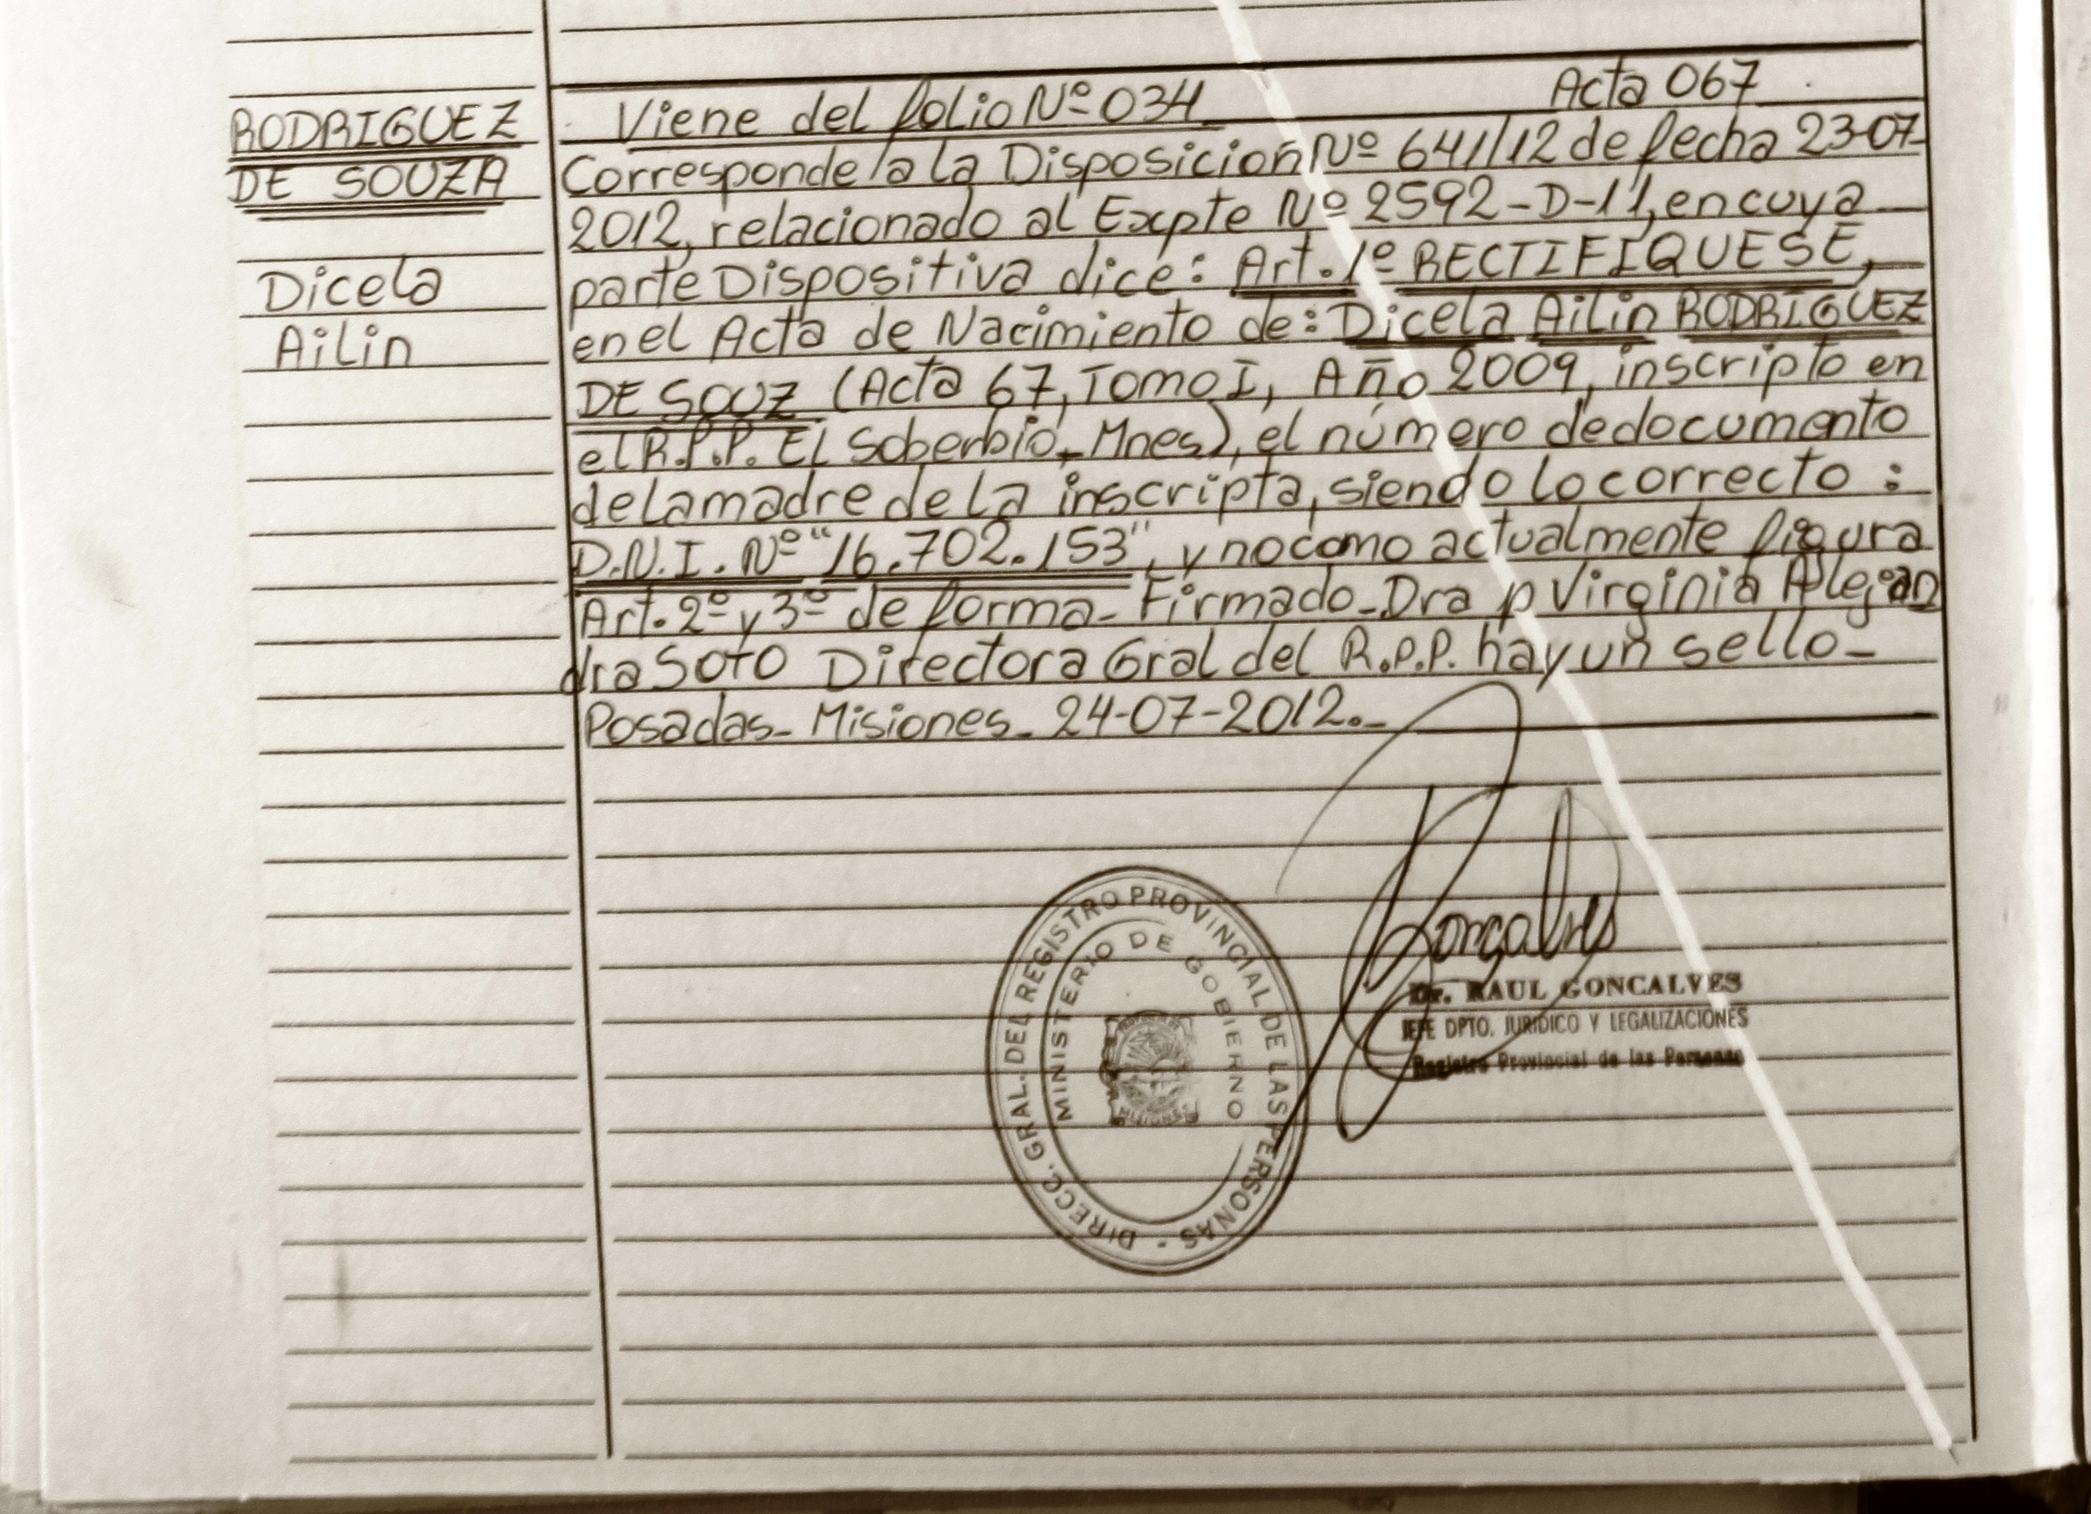 RODRIGUEZ
DE SOUZA
Dicela
Ailin
Viene del folio Nº 034 Acta 067
Corresponde a la Disposicion Nº 641/12 de fecha 23-07-
2012, relacionado al Expte Nº 2592-D-11, en cuya
parte Dispositiva dice: Art. 1º RECTIFIQUESE,
en el Acta de Nacimiento de: Dicela Ailin RODRIGUEZ
DE SOUZ (Acta 67, Tomo I, Año 2009, inscripto en
el R.P.P. El Soberbio_Mnes), el número de documento
de la madre de la inscripta, siendo lo correcto:
D.N.I. Nº "16.702.153", y no como actualmente figura
Art. 2º y 3º de forma_ Firmado_Dra p Virginia Alejan
dra SOTO Directora Gral del R.P.P. hay un sello_
Posadas_ Misiones_ 24-07-2012._
Gonçalves
Dr. RAUL GONCALVES
JEFE DPTO. JURIDICO Y LEGALIZACIONES
Registro Provincial de las Personas
DIRECC. GRAL. DEL REGISTRO PROVINCIAL DE LAS PERSONAS -
MINISTERIO DE GOBIERNO
MISIONES